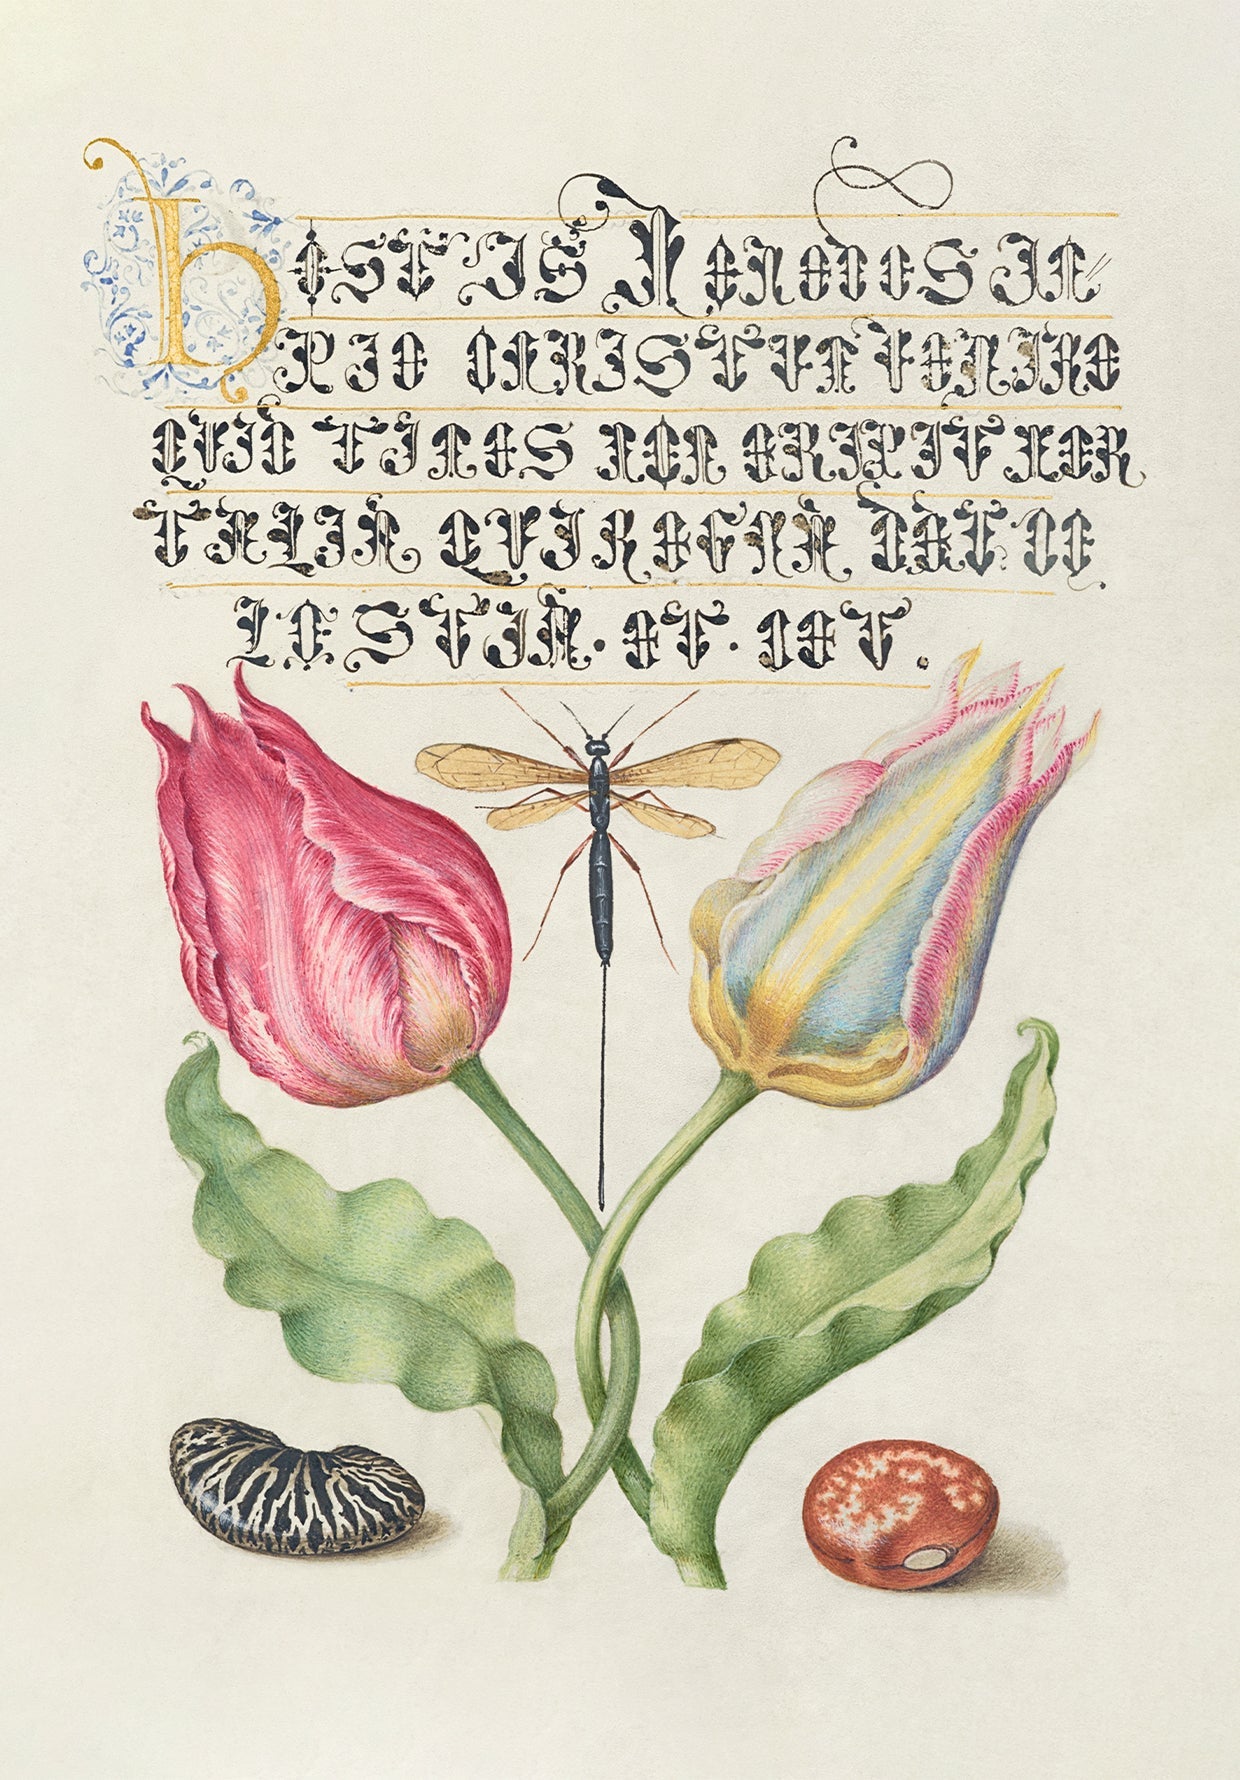 hOSTIS HERODES IM=
PIE CHRISTVM VENIRE
QVID TIMES NON ERIPIT MOR
TALIA QVI REGNA DAT CE
LESTIA. ET. CET.